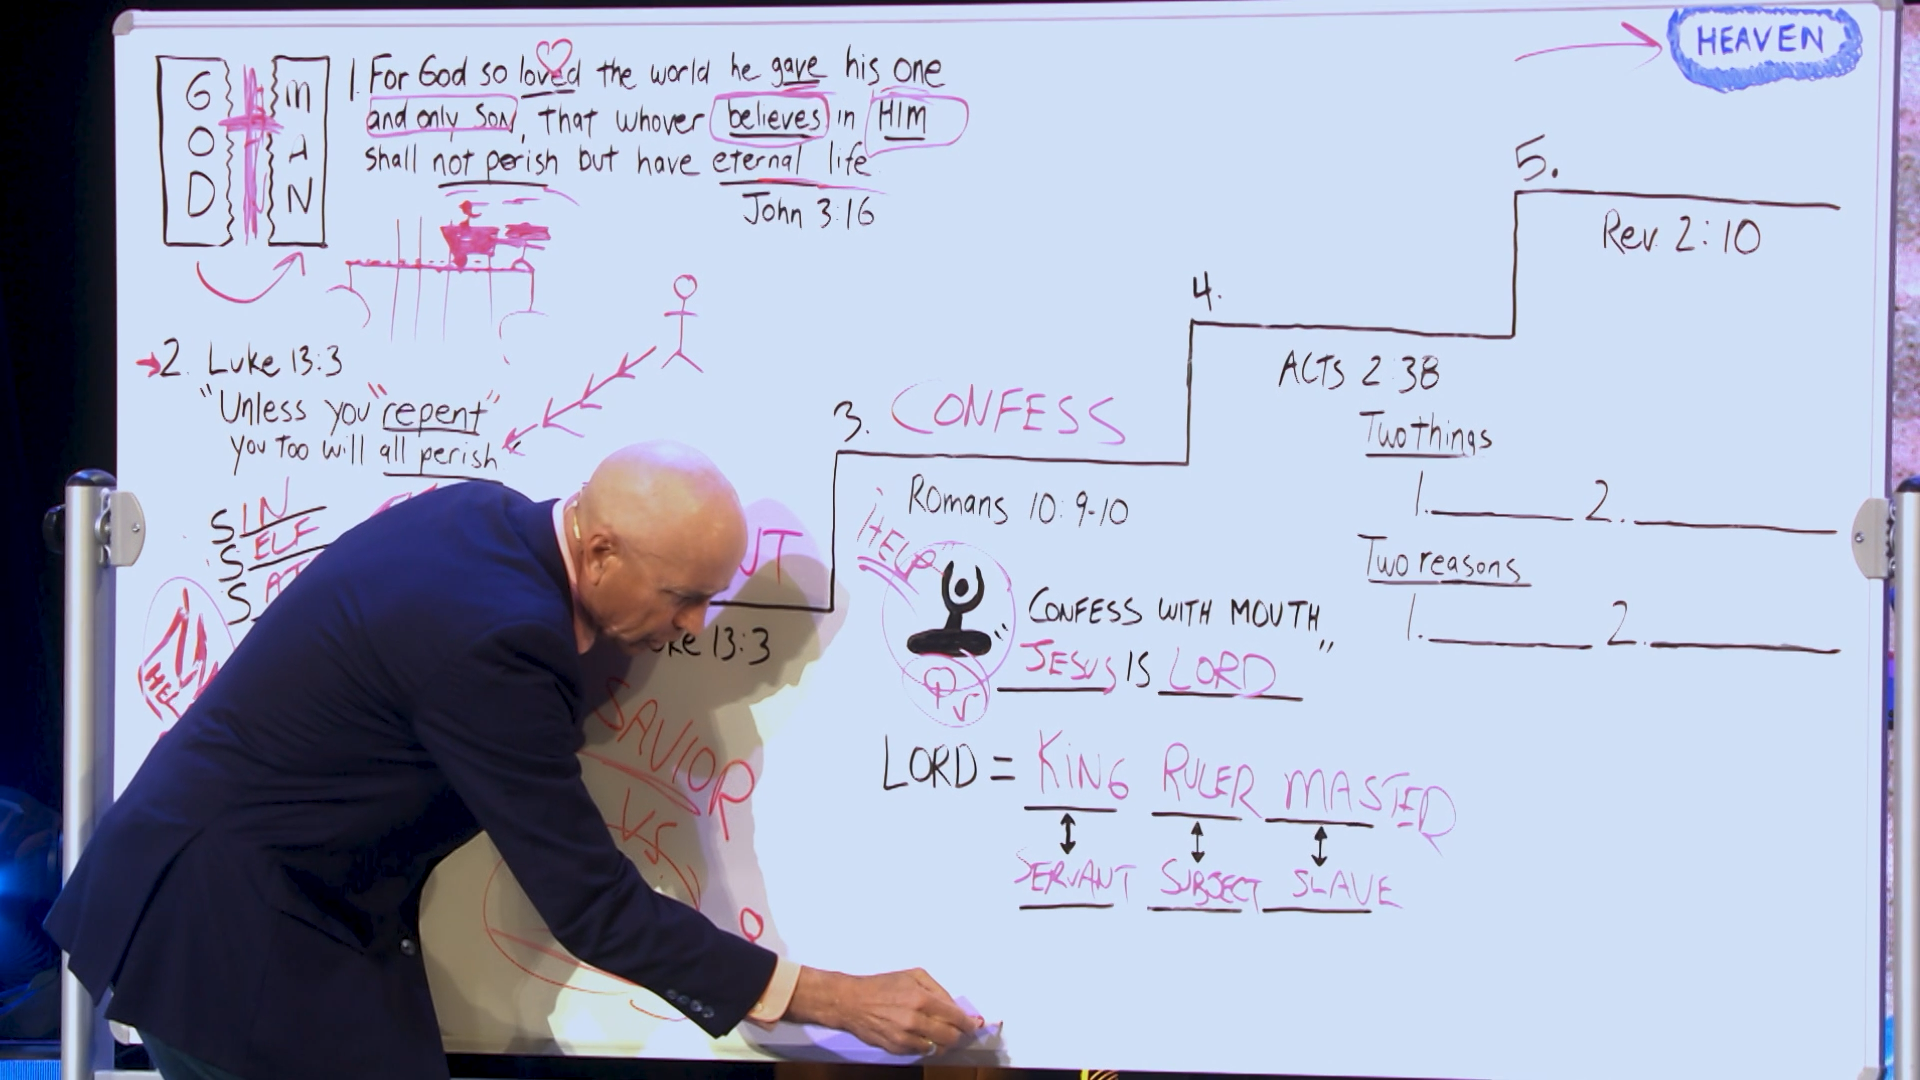 GOD
MAN
1. For God so loved the world he gave his one
and only Son, That whover believes in HIM
shall not perish but have eternal life
John 3:16
HEAVEN
2. Luke 13:3
"Unless you "repent"
you too will all perish
SIN
SELF
HELP
SAVIOR
VS.
13:3
3. CONFESS
Romans 10:9-10
HELP
CONFESS WITH MOUTH
"JESUS IS LORD"
LORD = KING RULER MASTER
SERVANT SUBJECT SLAVE
4.
ACTS 2:38
Two things
1. 2.
Two reasons
1. 2.
5.
Rev. 2:10